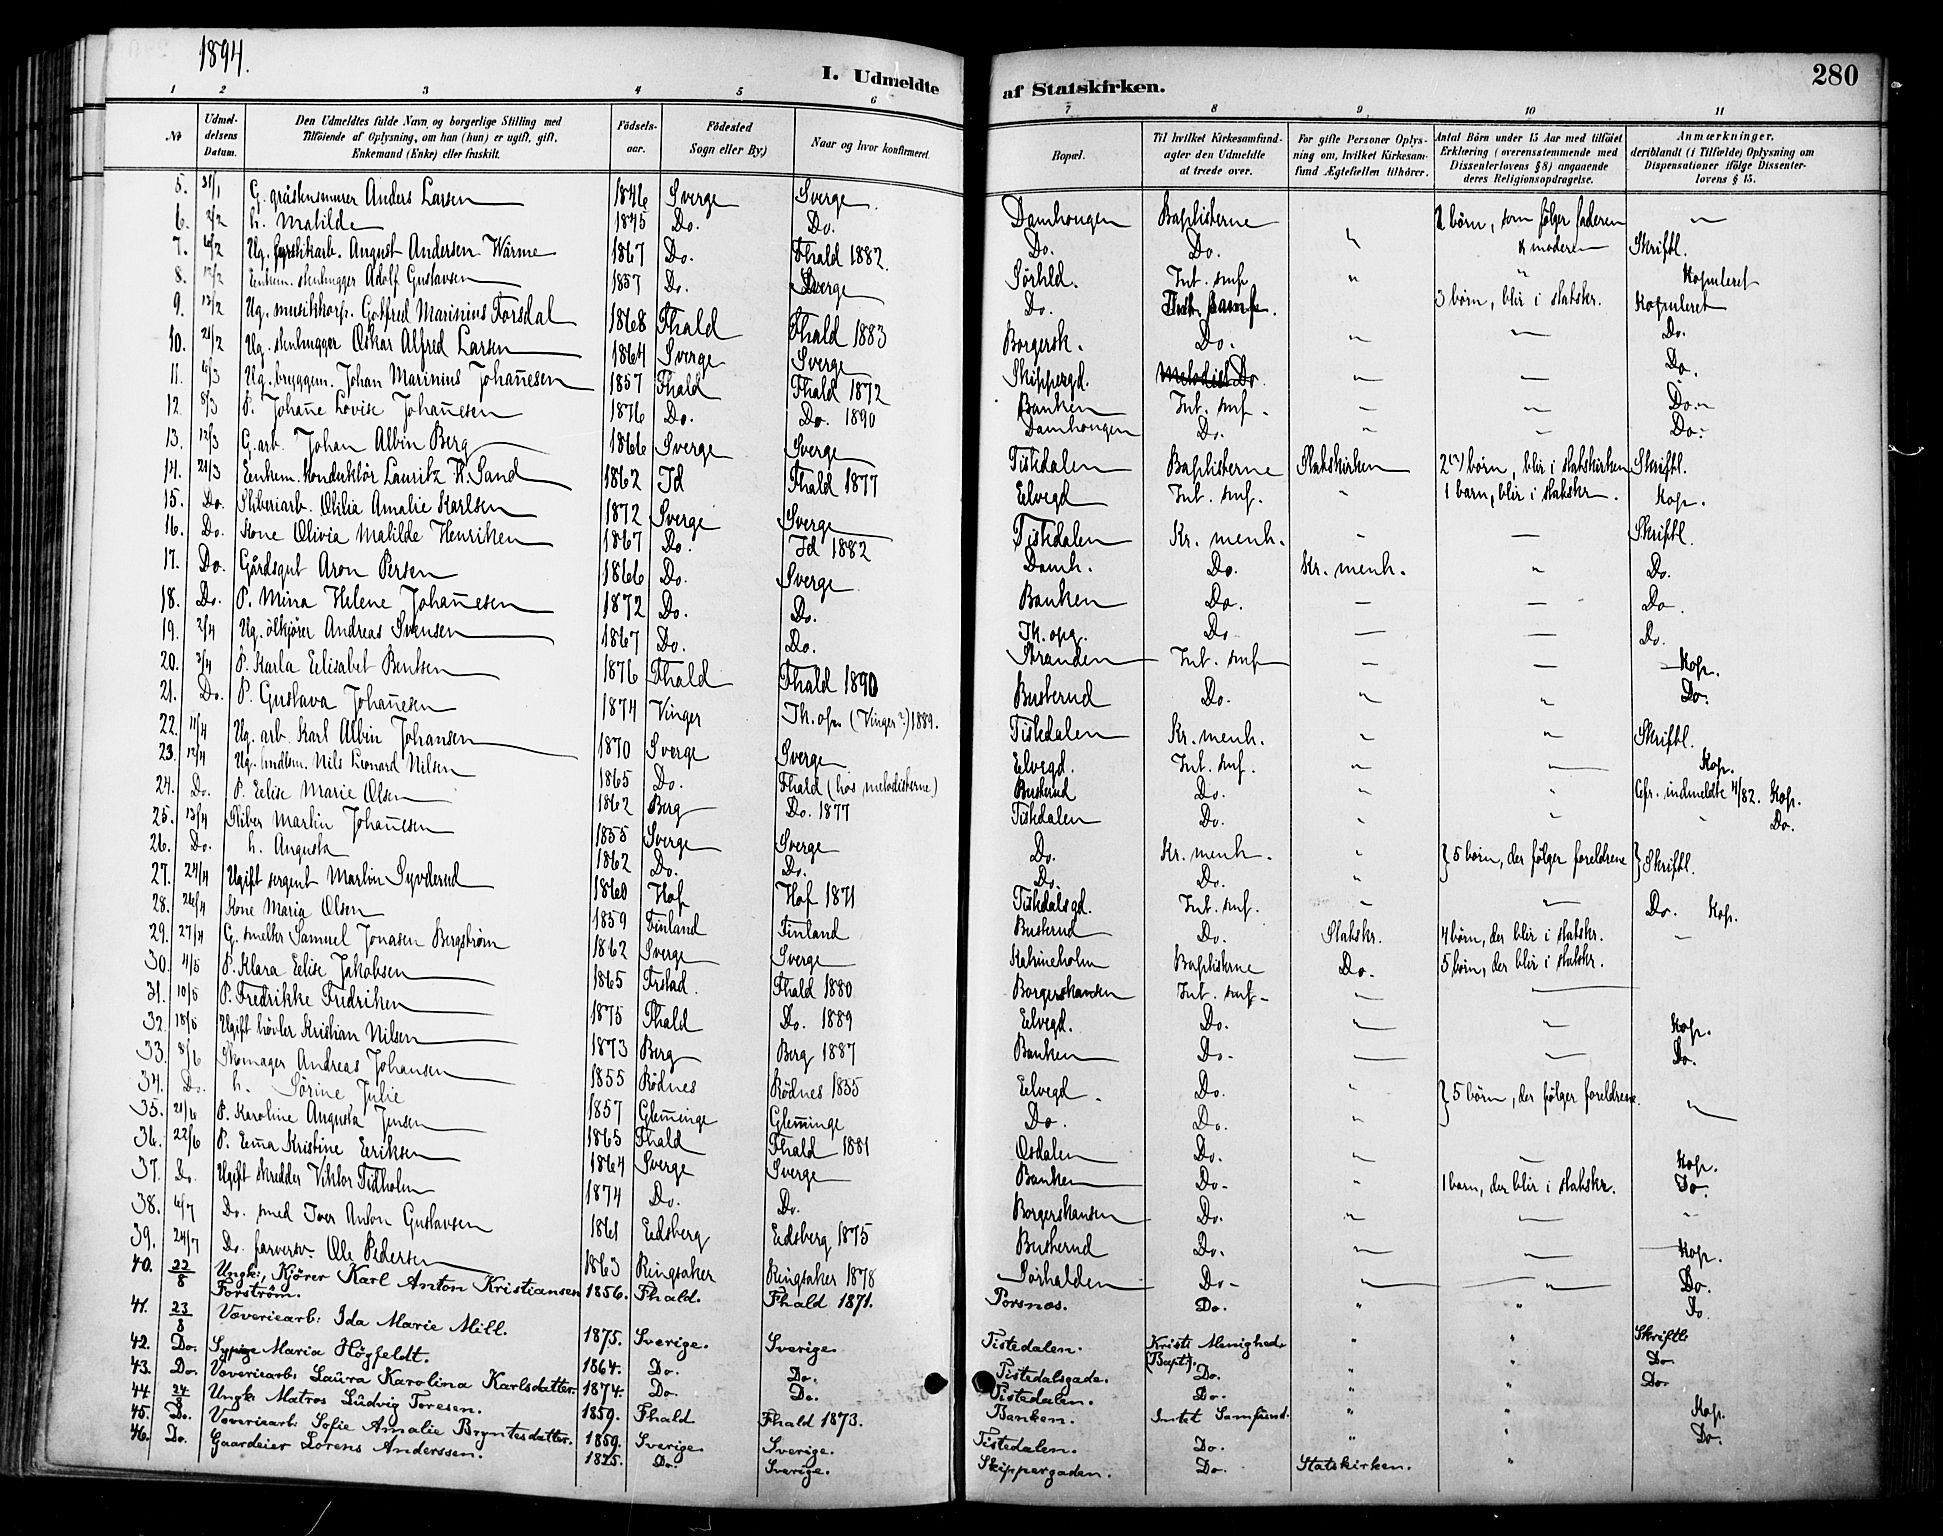 1894.
I. Udmeldte af Statskirken.
280
1 2 3 4 5 6 7 8 9 10 11
No
Udmeldelsens Datum.
Den Udmeldtes fulde Navn og borgerlige Stilling med Tilföiende af Oplysning, om han (hun) er ugift, gift, Enkemand (Enke) eller fraskilt.
Födselsaar.
Födested Sogn eller By.)
Naar og hvor konfirmeret.
Bopæl.
Til hvilket Kirkesamfund agter den Udmeldte at træde over.
For gifte Personer Oplysning om, hvilket Kirkesamfund Ægtefællen tilhörer.
Antal Börn under 15 Aar med tilföiet Erklæring (overensstemmende med Dissenterlovens § 8) angaaende deres Religionsopdragelse.
Anmærkninger, deriblandt (i Tilfælde) Oplysning om Dispensationer ifölge Dissenterlovens § 15.
5. 31/1 G. Anders Larsen 1846 Sverge Sverge Damhougen Baptisterne 2 børn, som følger faderen "
6. 2/2 h. Matilde 1845 Do. Do. Do. Do. " & moderen Skriftl.
7. 6/2 Ug. August Andersen Wärme 1867 Do. Fhald 1882. Sørhld. Int. smf " " Kopuleret
8. 12/2 Enkem. stenhugger Adolf Gustavsen 1857 Do. Sverge Do. Int. samf. 3 børn, blir i statskr. Kopuleret
9. 12/2 Ug. musikkorp. Gotfred Marinius Forsdal 1868 Fhald Fhald 1883 Borgersk. Do. " " Do.
10. 21/2 Ug. stenhugger Oskar Alfred Larsen 1864 Sverge Sverge Skippergd. Do. " " Do.
11. 6/3 Ug. bryggem. Johan Marinius Johan̄esen 1857 Fhald Fhald 1872 Banken Int. smf. " " Do.
12. 8/3 P. Johan̄e Lovise Johan̄esen 1876 Do. Do. 1890 Damhougen Do. " " Do.
13. 12/3 G. arb. Johan Albin Berg 1866 Sverge Sverge Tistedalen Baptisterne Statskirken 2 børn, blir i statskirken Skriftl.
14. 21/3 Enkem. Konduktör Lauritz K. Sand 1862 Id Fhald 1877 Elvegd Int. smf. " 1 barn, blir i statskr. Kop.
15. Do. Sliberiarb. Otilia Amalie Karlsen 1872 Sverge Sverge Tistedalen Kr. menh. " " Skriftl.
16. Do. Kone Olivia Matilde Henriksen 1867 Do. Id 1882 Damh. Do. Kr. menh. " Do.
17. Do. Gårdsgut Aron Persen 1866 Do. Sverge Banken Do. " " Do.
18. Do. P. Mina Helene Johan̄esen 1872 Do. Do. Tk. opg. Do. " " Do.
19. 2/4 Ug. ölkjører Andreas Svensen 1867 Do. Do. Stranden Int. smf " " Kop.
20. 3/4 P. Karla Elisabet Bentsen 1876 Fhald Fhald 1890 Busterud Do. " " Do.
21. Do. P. Gustava Johan̄esen 1874 Vinger Tk. op. (Vinger?) 1889. Tistedalen Kr. menh. " " Skriftl.
22. 11/4 Ug. arb. Karl Albin Johansen 1870 Sverge Sverge Elvegd. Int. smf. " " Kop.
23. 12/4 Ug. hndlsm. Nils Leonard Nilsen 1865 Do. Fhald (hos metodisterne) Busterud Do. " indmeldt 4/82. Kop.
24. Do. P. Elise Marie Olsen 1862 Berg Do. 1877 Tistedalen Do. " " " Do.
25. 13/4 Sliber Martin Johan̄esen 1855 Sverge Sverge Do. Kr. menh. " } 5 børn, der følger foreldrene } Skriftl.
26. Do. h. Augusta 1862 Do. Do. Do. Do. "
27. 24/4 Ugift sergent Martin Syvderud 1860 Hof Hof 1871 Tistedalsgd. Int. smf. " " Do. Kop.
28. 26/4 Kone Maria Olsen 1859 Finland Finland Busterud Do. Statskr. 4 børn, der blir i statskr. "
29. 27/4 G. smelter Samuel Jonasen Bergström 1862 Sverge Sverge Katrineholm Baptisterne Do. 5 børn, der blir i statskr.
30. 4/5 P. Klara Elise Jakobsen 1865 Frstad. Fhald 1880 Borgerskansen Int. smf. " "
31. 10/5 P. Fredrikke Fredriksen 1875 Fhald Do. 1889 Elvegd. Do. " " Kop.
32. 18/5 Ugift høvler Kristian Nilsen 1873 Berg Berg 1887 Banken Do. " " Do.
33. 8/6 Skomager Andreas Johansen 1855 Rödnes Rödnes 1855 Elvegd. Do. " } 5 børn, der følger foreldrene. "
34. Do. h. Sörine Julie 1857 Glem̄inge Glem̄inge Do. Do. "
35. 21/6 P. Karoline Augusta Jensen 1865 Fhald Fhald 1881 Osdalen Do. " " Kop.
36. 22/6 P. Em̄a Kristine Eriksen 1864 Sverge Sverge Banken Do. " 1 barn, der blir i statskr. Do.
37. Do. Ugift skredder Viktor Fidholm 1874 Do. Do. Borgerskansen Do. " " "
38. 6/7 Do. smed Iver Anton Gustavsen 1861 Eidsberg Eidsberg 1875 Busterud Do. " " Kop.
39. 24/7 Do. farversv. Ole Pedersen 1863 Ringsaker Ringsaker 1878 Sørhalden Do. " " Do.
40. 22/8 Ungk., Kjörer Karl Anton Kristiansen Forström. 1856. Fhald. Fhald 1871. Porsnes. Do. " " Do.
41. 23/8 Væveriearb: Ida Marie Mill. 1875. Sverige. Sverige. Tistedalen. Kristi Menighed (Bapt.). " " Skriftl.
42. Do. Sypige Maria Högfeldt. 1864. Do. Do. Tistedalsgade. Do. " " Do.
43. Do. Væveriearb: Laura Karolina Karlsdatter. 1874. Do. Do. Tistedalen. Do. " " Do.
44. 24/8 Ungk: Matros Ludvig Toresen. 1859. Fhald Fhald 1873. Banken. Intet Samfund. " " Kop.
45. Do. Væveriearb: Sofie Amalie Bryntesdatter. 1859. Sverige. Sverige. Tistedalen. Do. " " Do.
46. Do. Gaardeier Lorens Anderssen. 1825. Do. Sverige. Skippergaden. Do. Statskirken. "